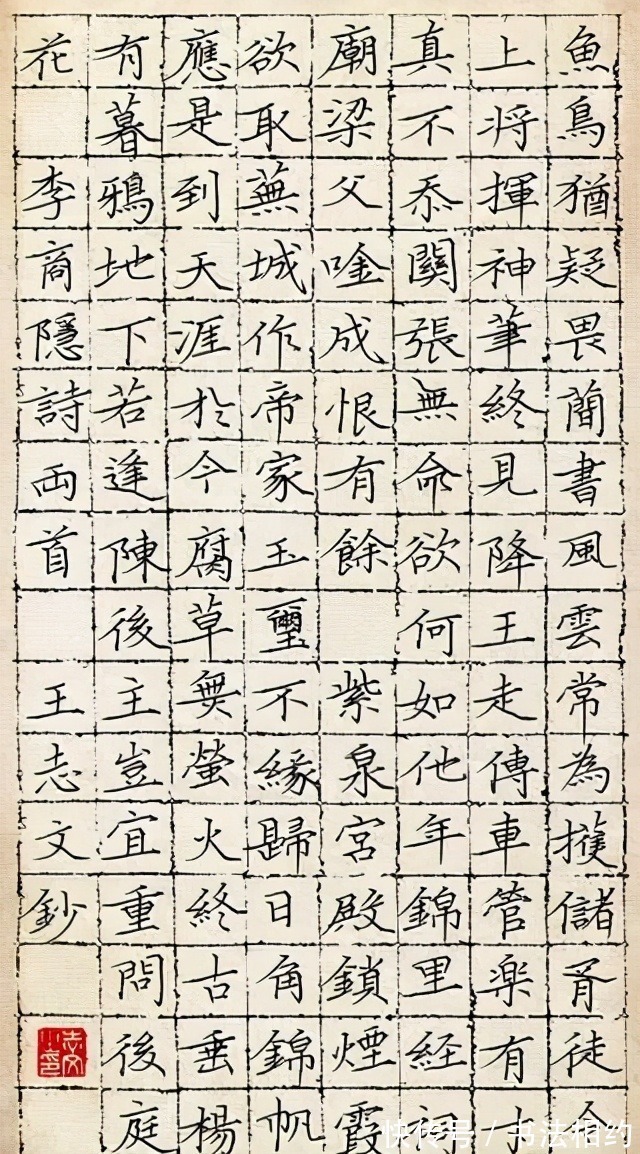 魚鳥猶疑畏簡書風雲常為擭儲胥徒令
上將揮神筆終見降王走傳車管楽有才
真不忝關張無命欲何如他年錦里經祠
廟梁父唫成恨有餘 紫泉宮殿鎖煙霞
欲取蕪城作帝家玉璽不緣歸日角錦帆
應是到天涯於今腐草無螢火終古垂楊
有暮鴉地下若逢陳後主豈宜重問後庭
花 李商隱詩兩首 王志文鈔
志文小印
快传号 / 书法相约